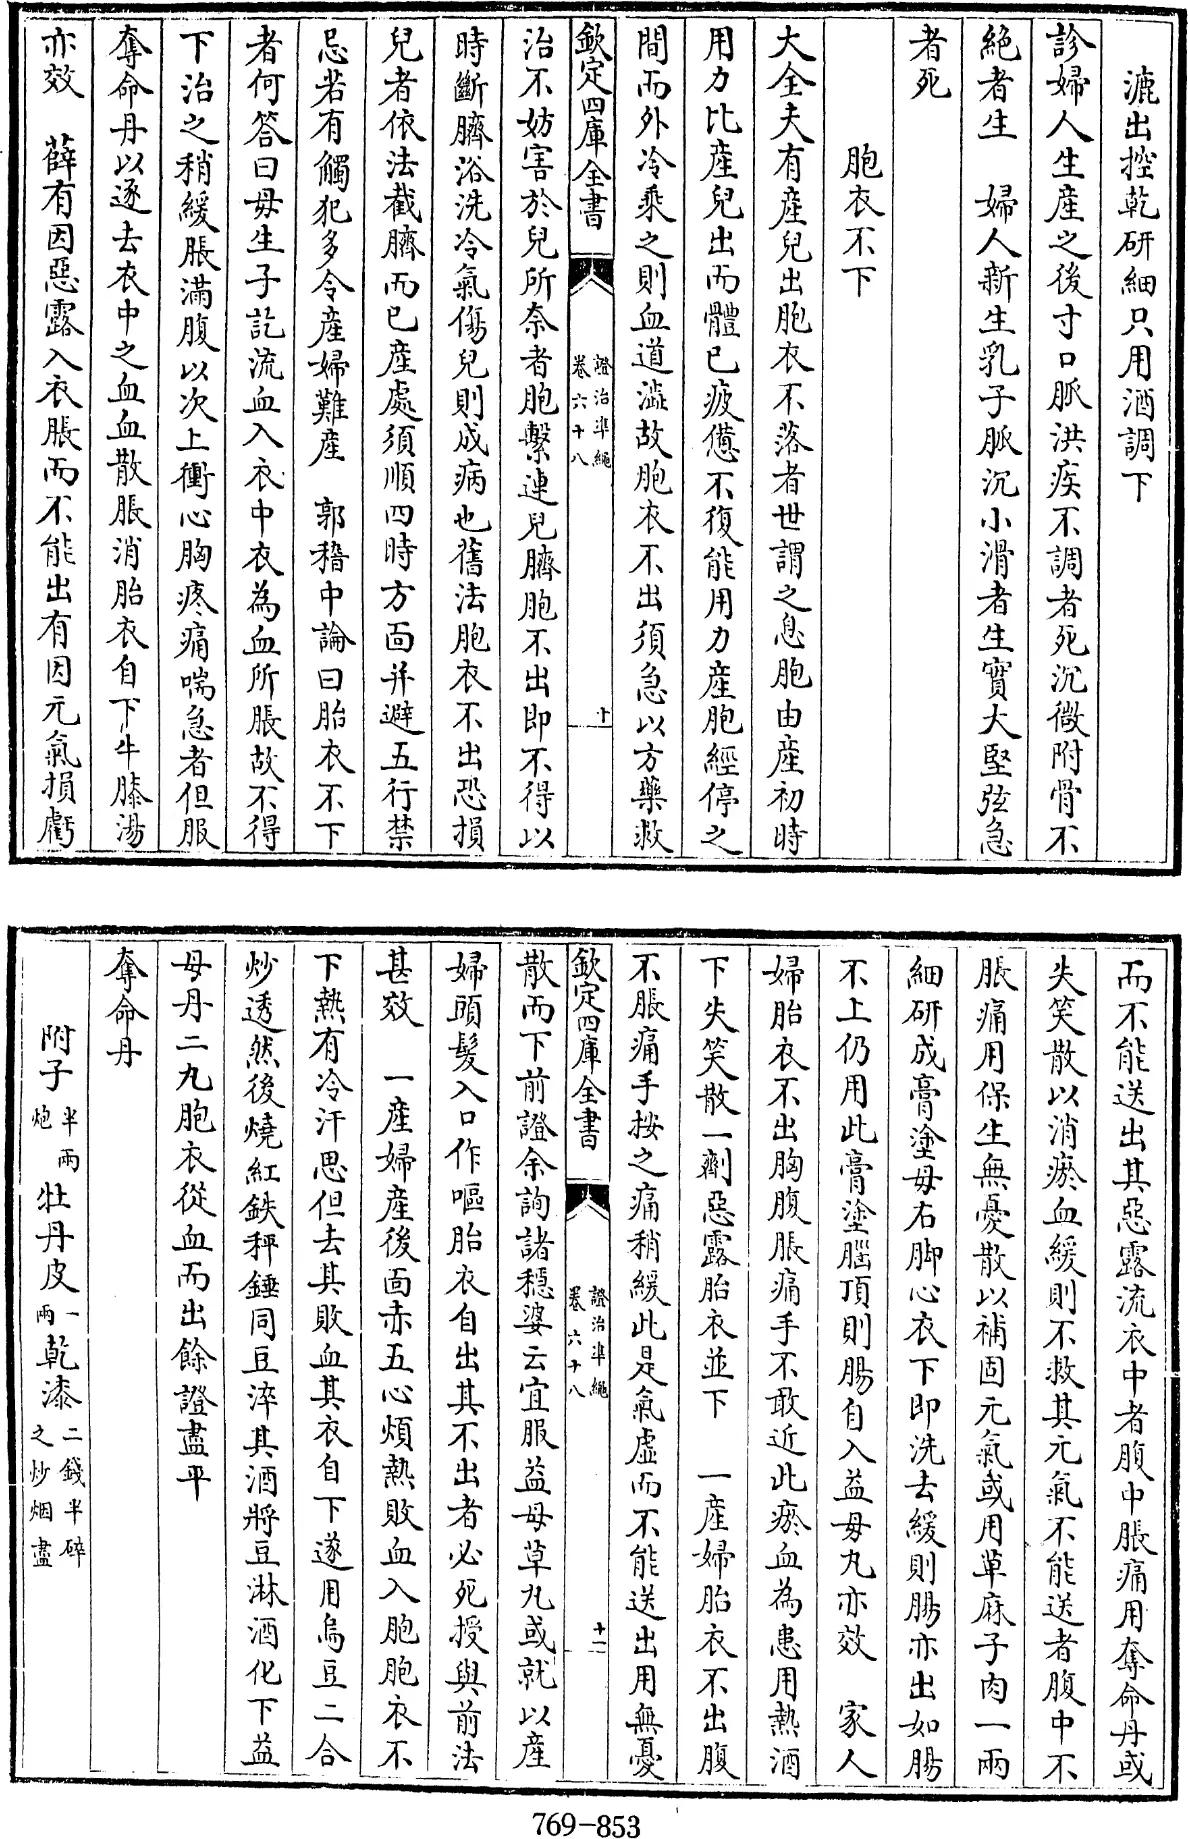 漉出控乾研細只用酒調下
診婦人生産之後寸口脈洪疾不調者死沉微附骨不
絶者生　婦人新生乳子脈沉小滑者生實大堅弦急
者死
胞衣不下
大全夫有産兒出胞衣不落者世謂之息胞由産初時
用力比産兒出而體已疲憊不復能用力産胞經停之
間而外冷乘之則血道澁故胞衣不出須急以方藥救
欽定四庫全書　證治準繩　卷六十八　十
治不妨害於兒所奈者胞繫連兒臍胞不出即不得以
時斷臍浴洗冷氣傷兒則成病也舊法胞衣不出恐損
兒者依法截臍而已産處須順四時方面并避五行禁
忌若有觸犯多令産婦難産　郭稽中論曰胎衣不下
者何答曰母生子訖流血入衣中衣為血所脹故不得
下治之稍緩脹滿腹以次上衝心胸疼痛喘急者但服
奪命丹以逐去衣中之血血散脹消胎衣自下牛膝湯
亦效　薛有因惡露入衣脹而不能出有因元氣損虧
而不能送出其惡露流衣中者腹中脹痛用奪命丹或
失笑散以消瘀血緩則不救其元氣不能送者腹中不
脹痛用保生無憂散以補固元氣或用萆麻子肉一兩
細研成膏塗母右脚心衣下即洗去緩則腸亦出如腸
不上仍用此膏塗腦頂則腸自入益母丸亦效　家人
婦胎衣不出胸腹脹痛手不敢近此瘀血為患用熱酒
下失笑散一劑惡露胎衣並下　一産婦胎衣不出腹
不脹痛手按之痛稍緩此是氣虛而不能送出用無憂
欽定四庫全書　證治準繩　卷六十八　十一
散而下前證余詢諸穩婆云宜服益母草丸或就以産
婦頭髮入口作嘔胎衣自出其不出者必死授與前法
甚效　一産婦産後面赤五心煩熱敗血入胞胞衣不
下熱有冷汗思但去其敗血其衣自下遂用烏豆二合
炒透然後燒紅鉄秤錘同豆淬其酒將豆淋酒化下益
母丹二丸胞衣從血而出餘證盡平
奪命丹
附子半兩炮　牡丹皮一兩　乾漆二錢半碎之炒烟盡
769-853